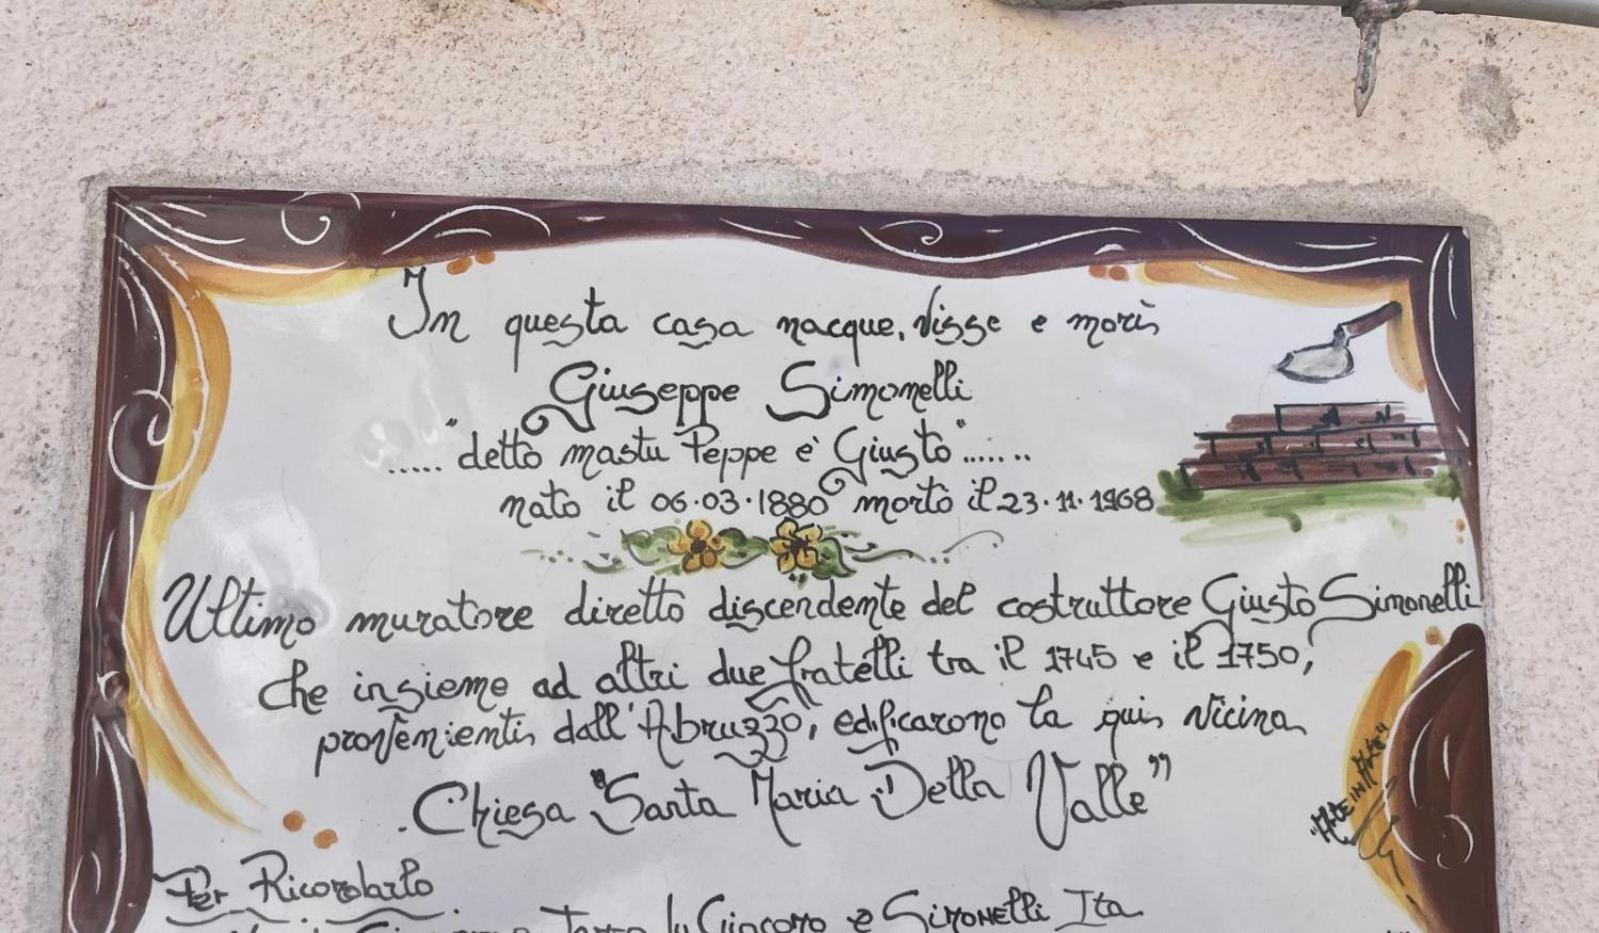 In questa casa nacque, visse e morì
Giuseppe Simonelli
....."detto mastu Peppe è Giusto"......
nato il 06·03·1880 morto il 23·11·1968
Ultimo muratore diretto discendente del costruttore Giusto Simonelli
che insieme ad altri due fratelli tra il 1745 e il 1750,
provenienti dall'Abruzzo, edificarono la qui vicina
Chiesa "Santa Maria Della Valle"
Per Ricordarlo
Giacomo e Simonelli Ita